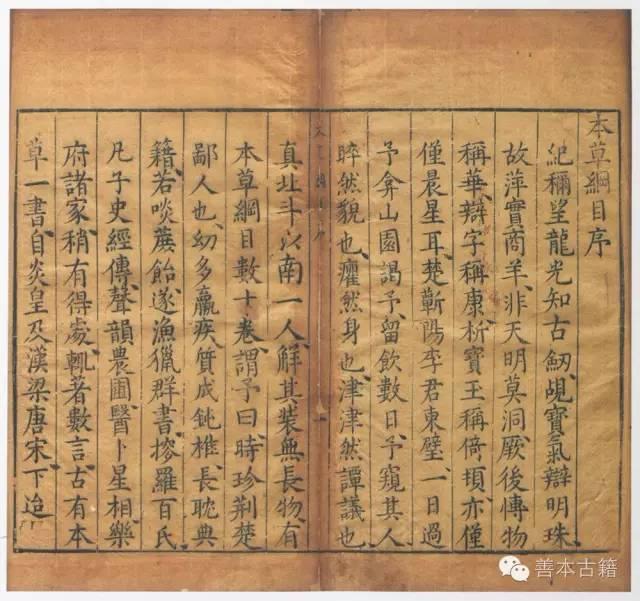 本草綱目序
紀稱望龍光知古劒覘寶氣辯明珠
故萍實商羊非天明莫洞厥後博物
稱華辯字稱康析寶玉稱倚頓亦僅
僅晨星耳楚蘄陽李君東璧一日過
予弇山園謁予留飲數日予窺其人
睟然貌也癯然身也津津然譚議也
真北斗以南一人解其裝無長物有
本草綱目數十卷謂予曰時珍荊楚
鄙人也幼多羸疾質成鈍椎長耽典
籍若啖蔗飴遂漁獵群書搜羅百氏
凡子史經傳聲韻農圃醫卜星相樂
府諸家稍有得處輒著數言古有本
草一書自炎皇及漢梁唐宋下迨
善本古籍